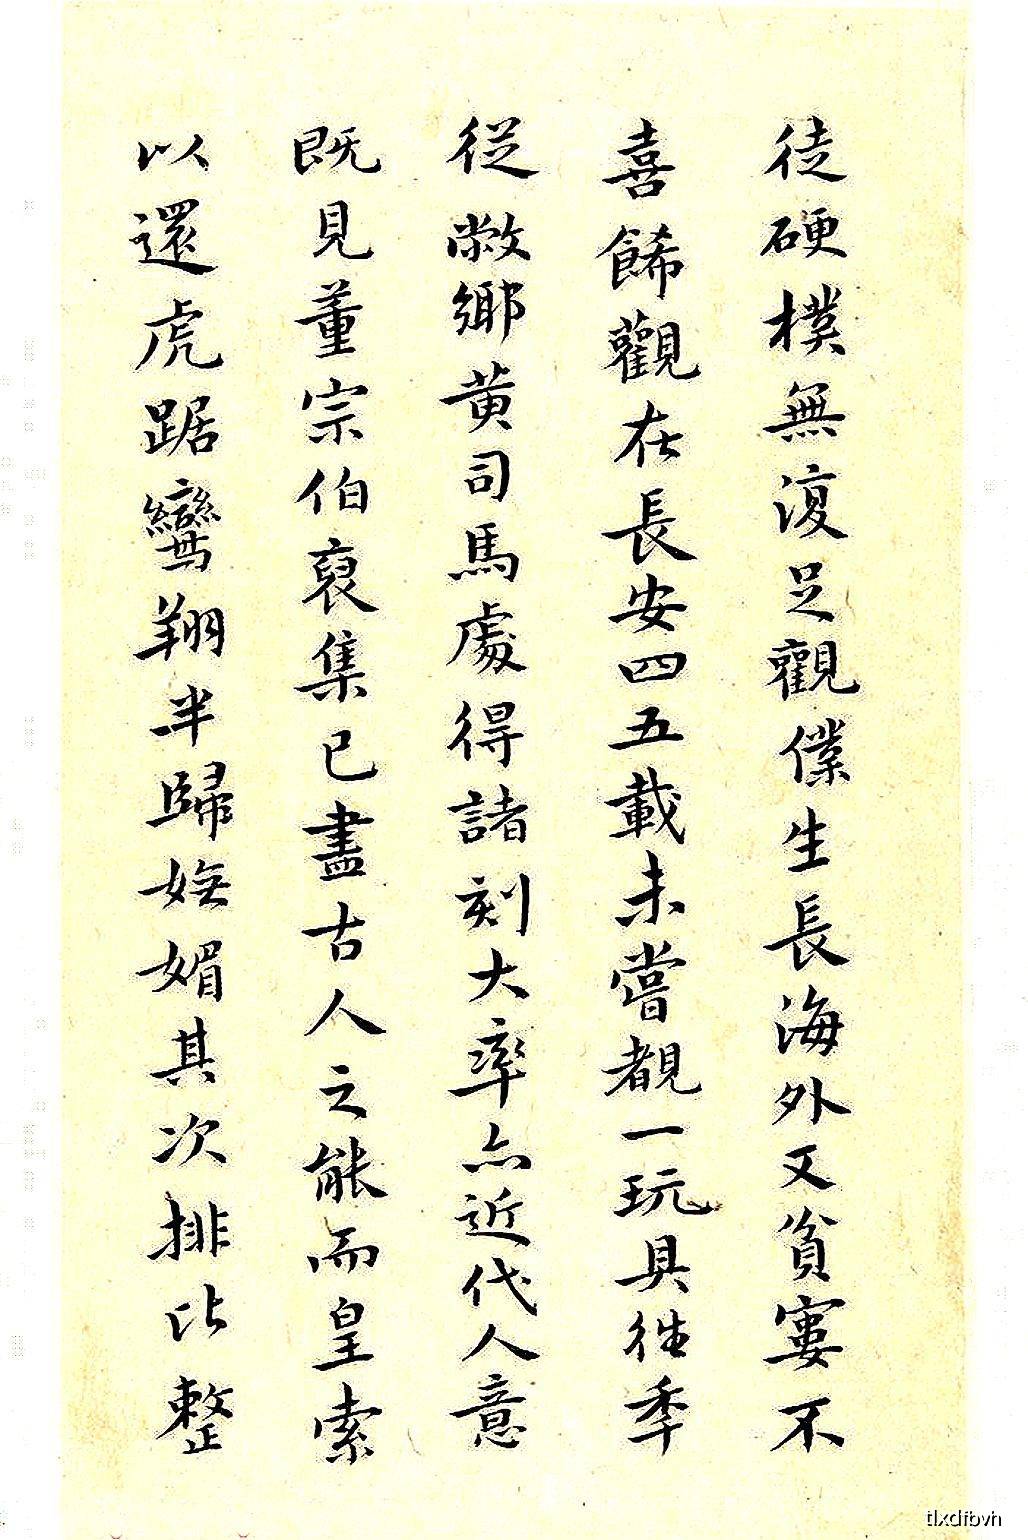 徒硬樸無復足觀僕生長海外又貧寠不
喜餙觀在長安四五載未嘗覩一玩具徃季
從敝鄉黄司馬處得諸刻大率亦近代人意
既見董宗伯裒集已盡古人之能而皇索
以還虎踞鸞翔半歸嫵媚其次排比整
tlxdfbvh